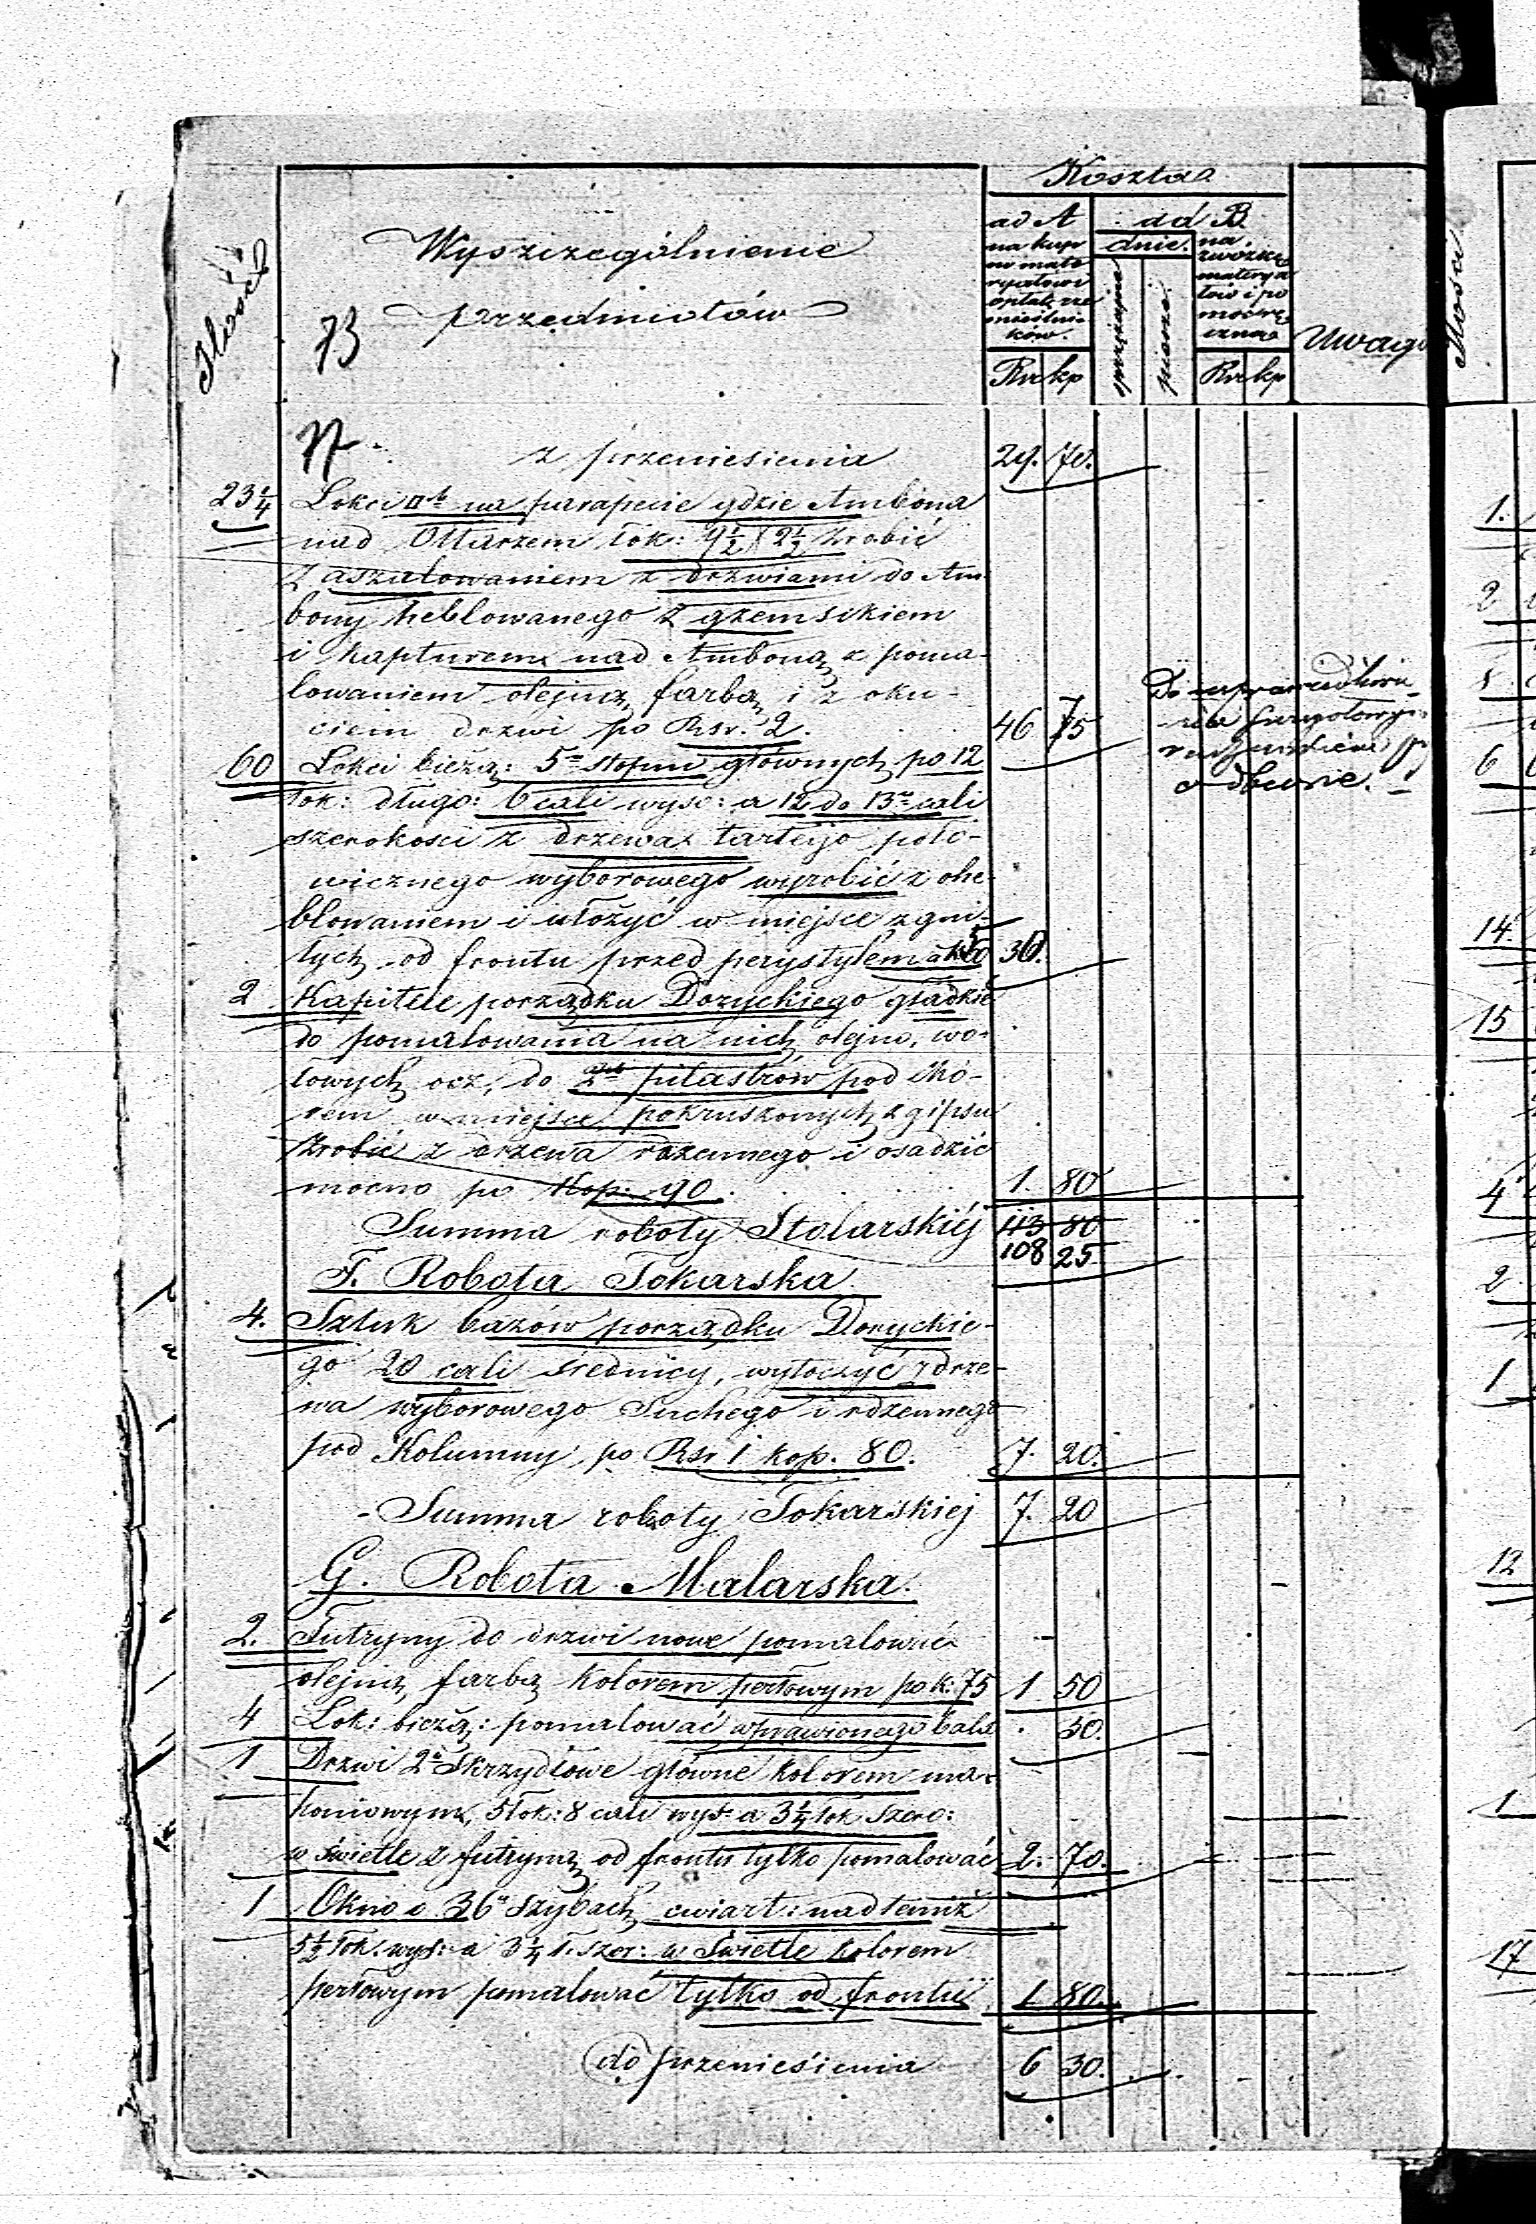 Ilość
Wyszczególnienie
przedmiotów
73
Koszta
ad A
na kup
no mate
ryałów i
opłatę rze
mieślni-
ków.
ad B.
dnie.
sprzężajne
piesze
na
zwózkę
materya
łów i po
moc rę
czną
Rsr kp
Rsr kp
Uwagi
Ilość
z przeniesienia 29. 70.
23 1/4 Łokci □ na parapecie gdzie Ambona
nad Ołtarzem łok: 9 1/2 / 2 1/2 zrobić
z aszalowaniem z drzwiami do Am-
bony heblowanego z gzemsikiem
i kapturem nad Amboną z poma-
lowaniem olejną farbą i z oku-
ciem drzwi po Rsr. 2. 46 75
Do
odbiorze.
60 Łokci bieżą: 5 stopni głównych po 12
łok: długo: 6 cali wyso: a 12 do 13 cali
szerokości z drzewa tartego poło-
wicznego wyborowego wyrobić z ohe-
blowaniem i ułożyć w miejsce zgni-
łych od frontu przed perystylem a k 50 30.
2 Kapitele porządku Doryckiego gładkie
do pomalowania na nich olejno, wo-
łowych ocz, do 2ch pilastrów pod Chó-
rem w miejsce pokruszonych z gipsu
zrobić z drzewa rdzennego i osadzić
mocno po Kop: 90. 1. 80
Summa roboty Stolarskiéj 113 80
108 25
F. Robota Tokarska
4. Sztuk bazów porządku Doryckie-
go 20 cali średnicy, wytoczyć z drze-
wa wyborowego Suchego i rdzennego
pod Kolumny, po Rsr 1 kop. 80. 7. 20.
- Summa roboty Tokarskiej 7. 20
G. Robota Malarska.
2. Futryny do drzwi nowe pomalować
olejną farbą kolorem perłowym po k: 75 1 50
4 Łok: bieżą: pomalować wprawionego bala . 30.
1 Drzwi 2 Skrzydłowe główne kolorem ma-
honiowym, 5 łok: 8 cali wys: a 3 1/4 łok szero:
w świetle z futryną od frontu tylko pomalować 2. 70.
1 Okno o 36 szybach ćwiart: nad temiż
5 1/2 łok. wys: a 3 1/4 ł. szer: w Świetle kolorem
perłowym pomalować tylko od frontu 1 80.
do przeniesienia 6 30.